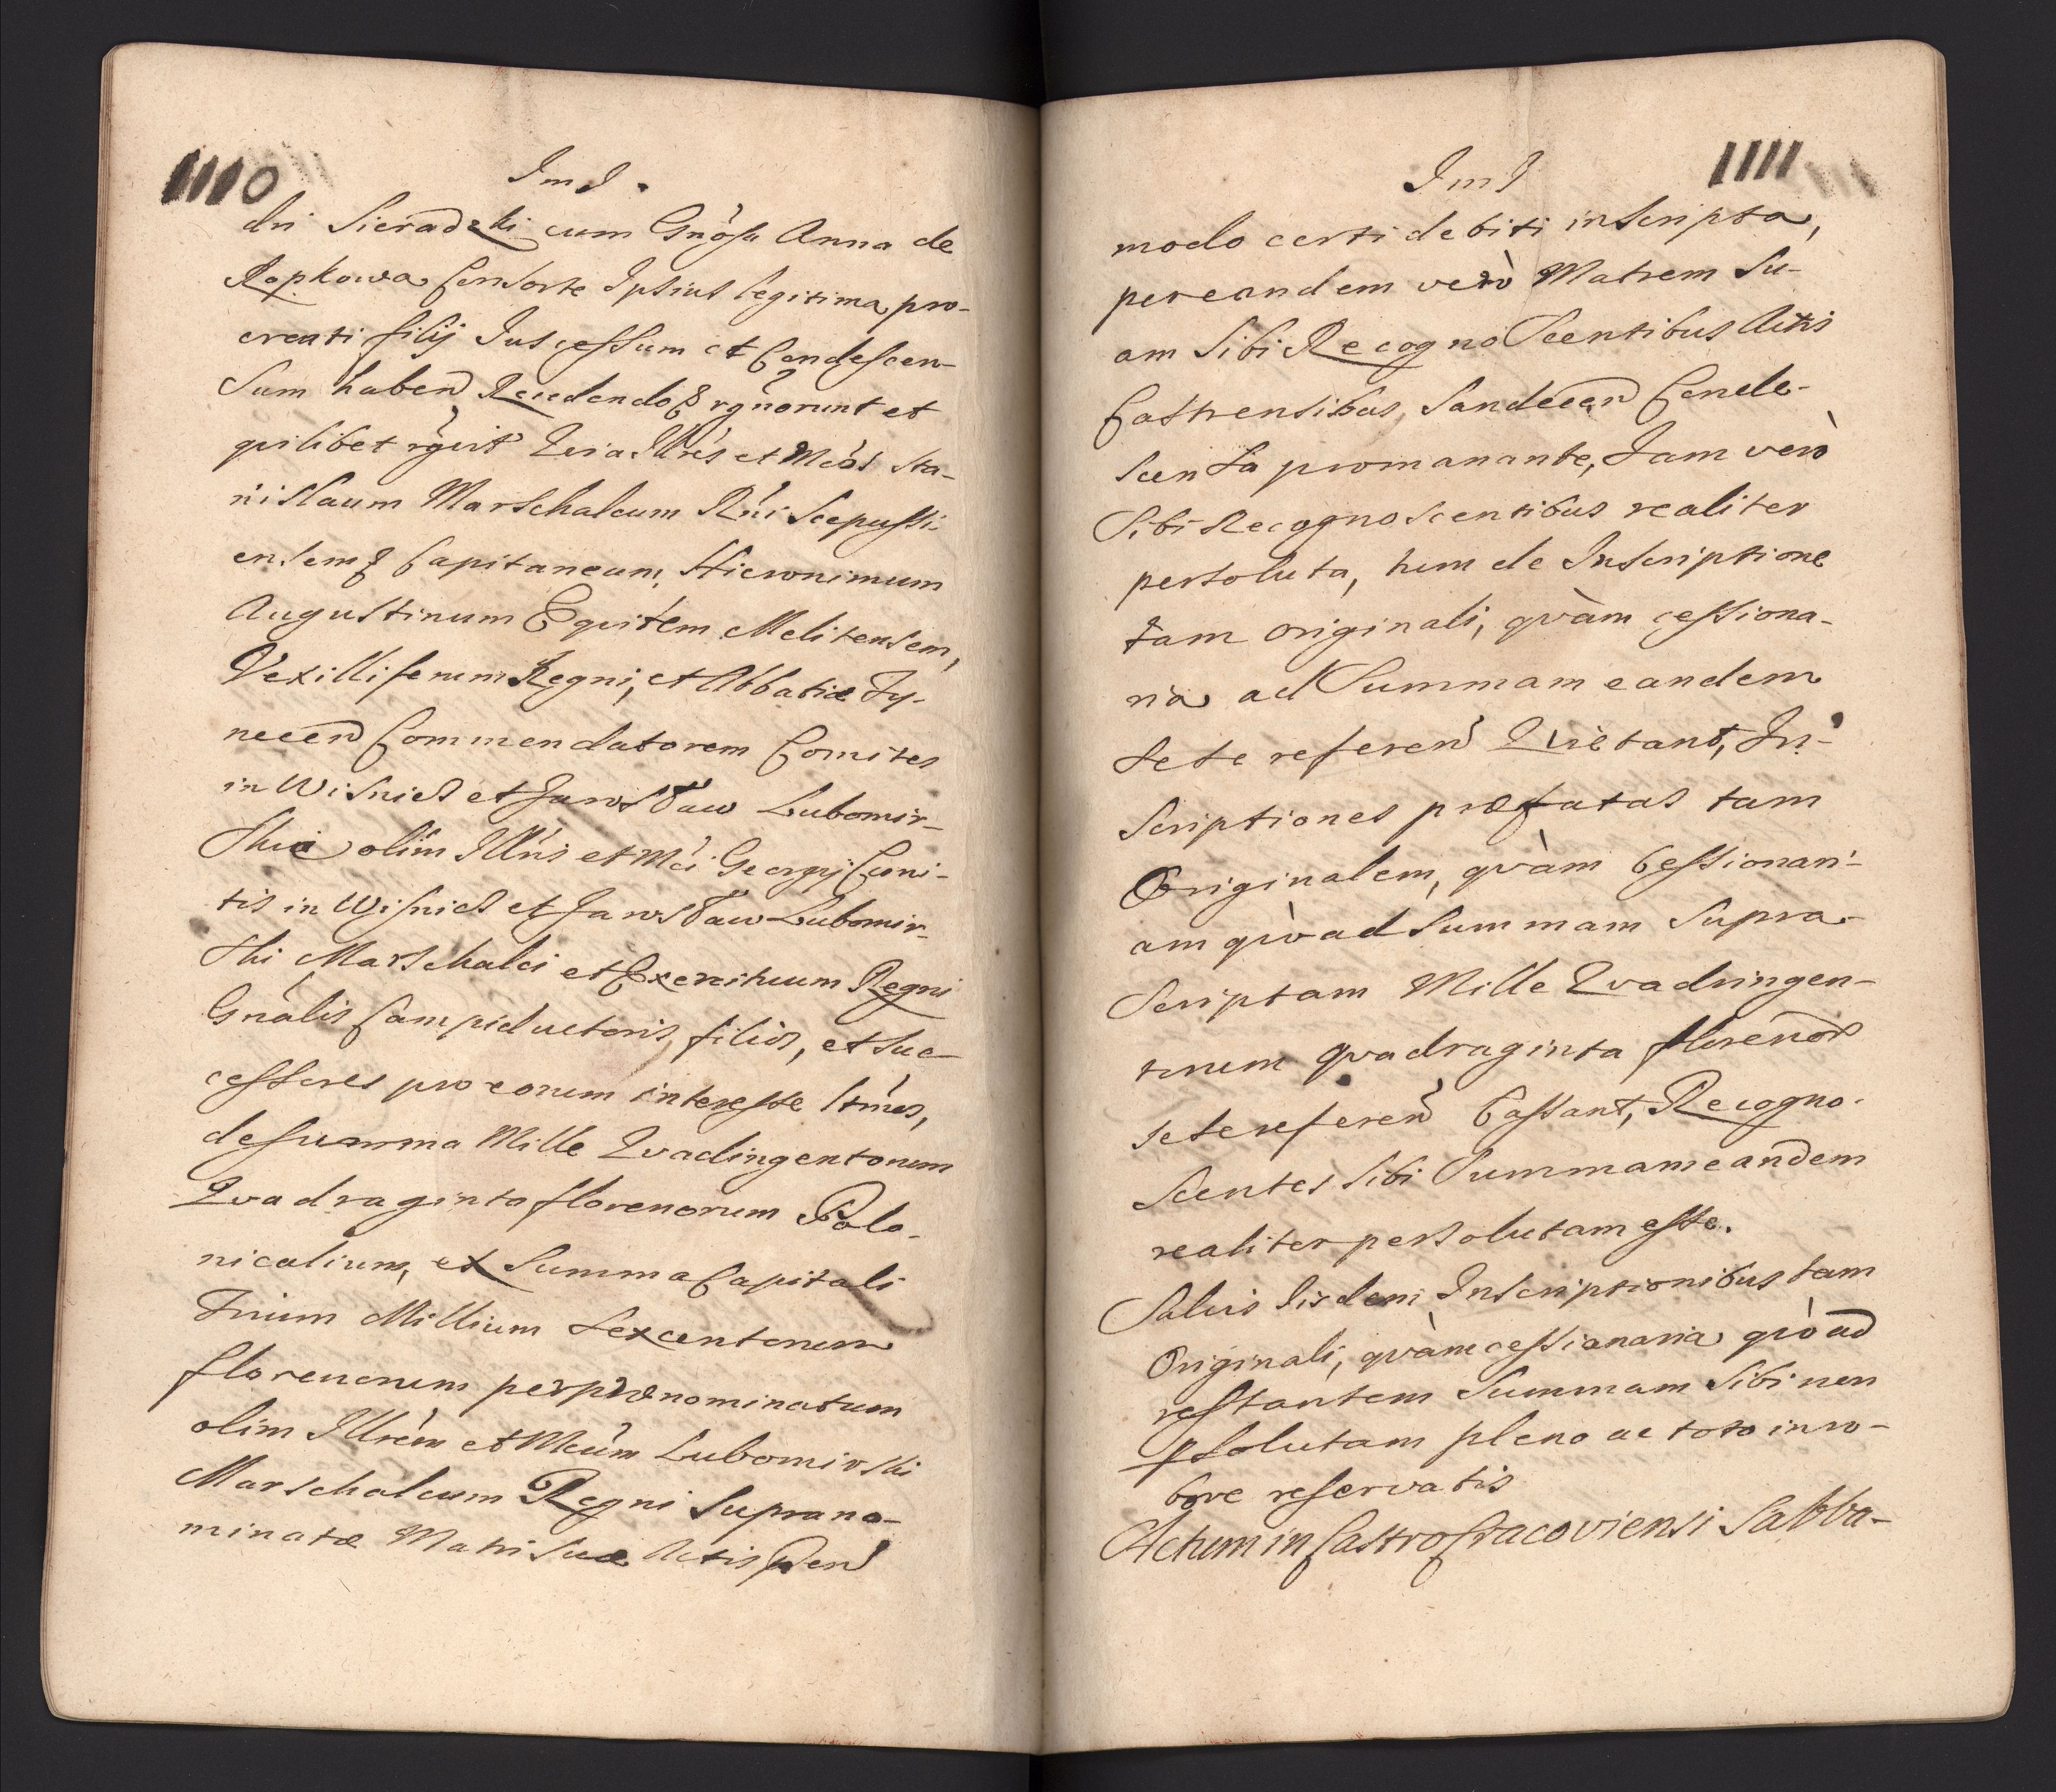 1110
ImJ.
dri Sieradzki cum Gnosa Anna de
Ropkowa Consorte Ipsius legitima pro-
creati filij Jus cessum et Condescen-
sum haben Recedendo rgnorunt et
quilibet rgvit Quia Illres et Mcos Sta-
nislaum Marschalcum Rni Scepussi-
ensem Capitaneum, Hieronimum
Augustinum Equitem Melitensem,
Vexilliferum Regni, et Abbatiæ Ty-
necen Commendatorem Comites
in Wisnicz et Jarosław Lubomir-
skie olim Illris et Mci Georgij Comi-
tis in Wisnicz et Jarosław Lubomir-
ski Marschalci et Exercituum Regni
Gnalis Campiductoris, filios, et suc-
cessores pro eorum interesse ltmos,
de summa Mille Quadingentorum
Quadraginta florenorum Polo-
nicalium, ex Summa Capitali
Trium Millium Sexcentorum
florenorum per prænominatum
olim Illrem et Mcum Lubomirski
Marschalcum Regni Suprano-
minatæ Matri Suæ Actis
1111
ImJ
modo certi debiti inscripta,
per eandem verò Matrem Su-
am Sibi Recognoscentibus Actis
Castrensibus, Sandecen Conde-
scensa promanante, Jam verò
Sibi Recognoscentibus realiter
persoluta, tum de Inscriptione
tam originali, quàm cessiona-
ria ad Summam eandem
sete referen Quietant, In-
scriptiones præfatas tam
Originalem, quàm Cessionari-
am quoad Summam Supra-
scriptam Mille Quadringen-
torum quadraginta floreno
sete referen Cassant, Recogno-
scentes Sibi Summam eandem
realiter persolutam esse.
Salvis Iisdem Inscriptionibus tam
Originali, quàm cessionaria quoad
restantem Summam Sibi non
psolutam pleno ac toto in ro-
bore reservatis
Actum in Castro Cracoviensi Sabba-